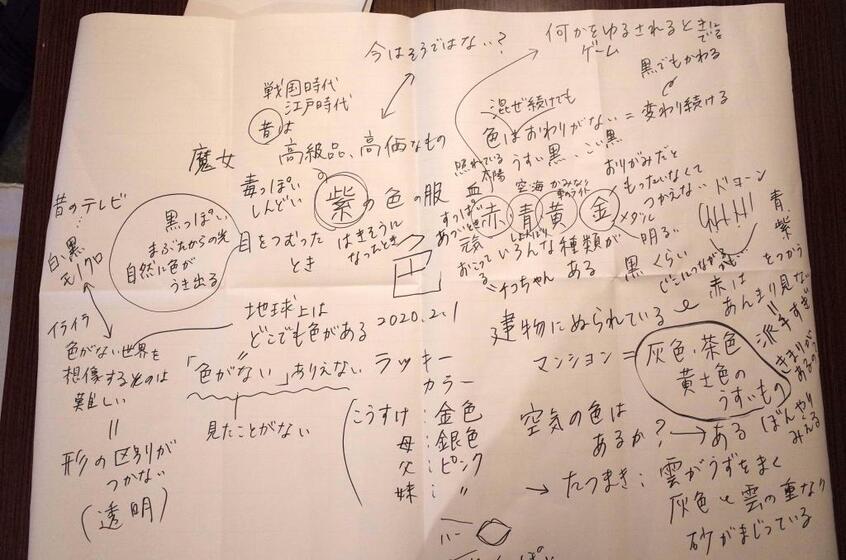 今はそうではない?
何かをゆるされるとき
ゲーム
戦国時代
江戸時代
昔は
魔女
高級品、高価なもの
毒っぽい
しんどい
紫の色の服
はきそうに
なったとき
目をつむった
とき
黒っぽい、
まぶたからの光
自然に色が
うき出る
昔のテレビ
白黒
モノクロ
イライラ
色がない世界を
想像するのは
難しい
||
形の区別が
つかない
(透明)
地球上は
どこでも色がある
「色がない」ありえない
見たことがない
色
2020.2.1
黒でもかわる
混ぜ続けても
色はおわりがない=変わり続ける
うすい黒、こい黒
照れている
太陽
血
赤 青 黄 金
空 海
かみなり
メダル
おりがみだと
もったいなくて
つかえない
すっぱい
元気
おこって
いる
いろんな種類が
ある
明るい
黒 くらい
ドヨーン
青、
紫
をつかう
建物にぬられている
赤は
あんまり見ない
||
派手すぎ
きまりが
あるの?
マンション=灰色、茶色
黄土色の
うすいもの
ラッキー
カラー
こうすけ:金色
母:銀色
父:ピンク
妹:〃
空気の色は
あるか?→ある
ぼんやり
みえる
→たつまき:雲がうずをまく
灰色と雲の重なり
砂がまじっている